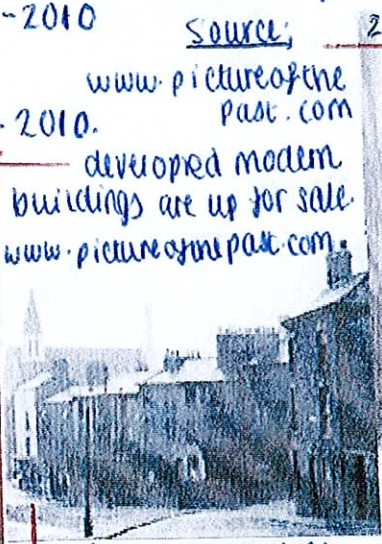 -2010
Source;
2
www.pictureofthe
past.com
- 2010.
developed modern
buildings are up for sale.
www.pictureofthepast.com.